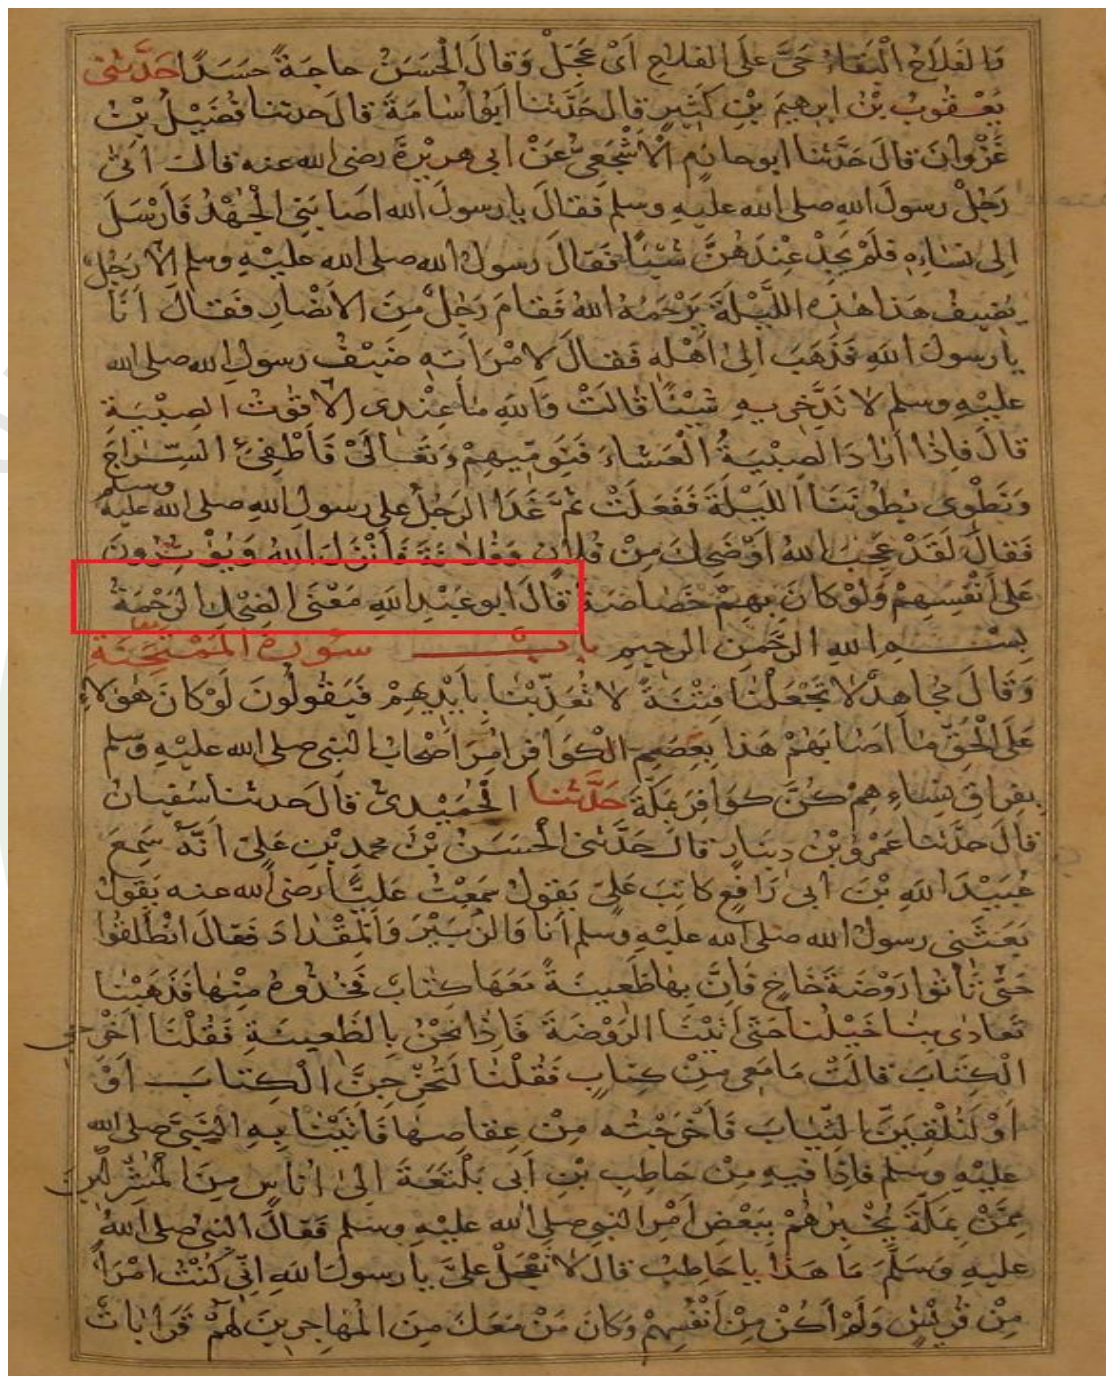 وَالفَلَاحُ الْبَقَاءُ حَيَّ عَلَى الفَلَاحِ اَيْ عَجِّلْ وَقَالَ الْحَسَنُ حاجَةً حَسَدًا حَدَّثَنى
يَعْقُوبُ بْنُ ابرهِيمَ بْنِ كَثِيرٍ قالَ حَدَّثَنا اَبُو اُسَامَةَ قالَ حدثنا فُضَيْلُ بْنُ
غَزْوانَ قالَ حَدَّثَنا ابو حازمٍ الْاَشْجَعِىُّ عَنْ ابى هريْرَةَ رضى الله عنه قالَ اَتى
رَجُلٌ رسولَ الله صلى الله عليهِ وسلم فَقالَ يا رسولَ الله اَصابَنِى الْجَهْدُ فَاَرْسَلَ
اِلى نِسَاءِهِ فَلَمْ يَجِدْ عِنْدَهُنَّ شَيْئًا فَقَالَ رَسولُ الله صلى الله عَلَيْهِ وسلم اَلَا رَجُلٌ
يُضِيفُ هَذا هذِهِ اللَّيْلَةَ يَرْحَمُهُ اللهُ فَقامَ رَجُلٌ مِنَ الاَنْصَارِ فَقَالَ اَنَا
يا رسولَ اللهِ فَذَهَبَ اِلى اَهْلِهِ فَقَالَ لِامْرَاَتِهِ ضَيْفُ رسولِ الله صلى الله
عليْهِ وسلم لا تَدَّخِرِيهِ شَيْئًا قَالَتْ وَاللهِ مَا عِنْدِى اِلَّا قُوْتُ الصِبْيَةِ
قالَ فَاِذا اَرادَ الصِبْيَةُ الْعَشاءَ فَنَوِّمِيهِمْ وَتَعَالَىْ فَاَطْفِئِ السِّراجَ
وَنَطْوِى بُطُونَنَا اللَيْلَةَ فَفَعَلَتْ ثمَّ غَدَا الرَجُلُ على رسولِ اللهِ صلى الله عليهِ وسلم
فَقالَ لَقَدْ عَجِبَ اللهُ اَوْ ضَحِكَ مِنْ فُلانٍ وَفُلانَةَ فَاَنْزَلَ اللهُ وَيُؤْثِرُونَ
عَلى اَنْفُسِهِمْ وَلَوْ كانَ بِهِمْ خَصَاصَةٌ قالَ ابو عَبْدِ اللهِ مَعْنَى الضِحْكِ الرَحْمَةُ
بِسْمِ اللهِ الرَّحْمنِ الرحِيمِ بابٌ سُورَة المُمْتَحِنَةِ
وَقَالَ مُجاهِدٌ لا تَجْعَلْنَا فِتْنَةً لا تُعَذِّبْنا بِاَيْدِيهِمْ فَيَقُولُونَ لَوْ كانَ هؤلاءِ
عَلَى الْحَقِّ مَا اَصَابَهُمْ هَذا بِعِصَمِ الْكَوَافِرِ اُمِرَ اَصْحابُ النبى صلى الله عليْهِ وسلم
بِفِراقِ نِسَاءِهِمْ كُنَّ كَوَافِرَ بِمَكَّةَ حَدَّثَنا الْحُمَيْدِىُّ قالَ حدثنا سُفْيانُ
قالَ حَدَّثَنا عَمْرُو بْنُ دِينارٍ قالَ حَدَّثَنى الْحَسَنُ بْنُ محمدِ بْنِ عَلِىٍّ اَنَّهُ سَمِعَ
عُبَيْدَ اللهِ بْنَ اَبى رَافِعٍ كاتِبَ عَلِىٍّ يَقولُ سَمِعْتُ عَلِيًّا رضى الله عنه يَقُولُ
بَعَثَنِى رسولُ الله صلى الله عليْهِ وسلم اَنَا وَالزُبَيْرَ وَالْمِقْدادَ فَقالَ انْطَلِقُوا
حَتَّى تَأْتُوا رَوْضَةَ خَاخٍ فَاِنَّ بِها ظَعِينَةً مَعَهَا كِتابٌ فَخُذُوهُ مِنْها فَذَهَبْنا
تَعادَى بِنا خَيْلُنا حَتَّى اَتَيْنَا الرَوْضَةَ فَاِذا نَحْنُ بِالظَعِينَةِ فَقُلْنَا اَخْرِجِى
الْكِتَابَ قالَتْ مَا مَعِى مِنْ كِتابٍ فَقُلْنا لَتُخْرِجِنَّ الْكِتابَ اَوْ
اَوْ لَنُلْقِيَنَّ الثِّيابَ فَاَخْرَجَتْهُ مِنْ عِقاصِها فَاَتَيْنا بِهِ النَّبِىَّ صلى الله
عليْهِ وسَلم فَاِذَا فِيهِ مِنْ حَاطِبِ بْنِ اَبى بَلْتَعَةَ اِلى اُناسٍ مِنَ الْمُشْرِكِينَ
مِمَّنْ بِمَكَّةَ يُخْبِرُهُمْ بِبَعْضِ اَمْرِ النبى صلى الله عليْهِ وسلم فَقَالَ النبىُ صلى اللهُ
عليهِ وسَلَّمَ مَا هَذَا يا حَاطِبُ قالَ لا تَعْجَلْ عَلَىَّ يا رسولَ اللهِ اِنِّى كُنْتُ امْرَأً
مِنْ قُرَيْشٍ وَلَمْ اَكُنْ مِنْ اَنْفُسِهِمْ وَكانَ مَنْ مَعَكَ مِنَ الْمُهاجِرِينَ لَهُمْ قَرَاباتٌ